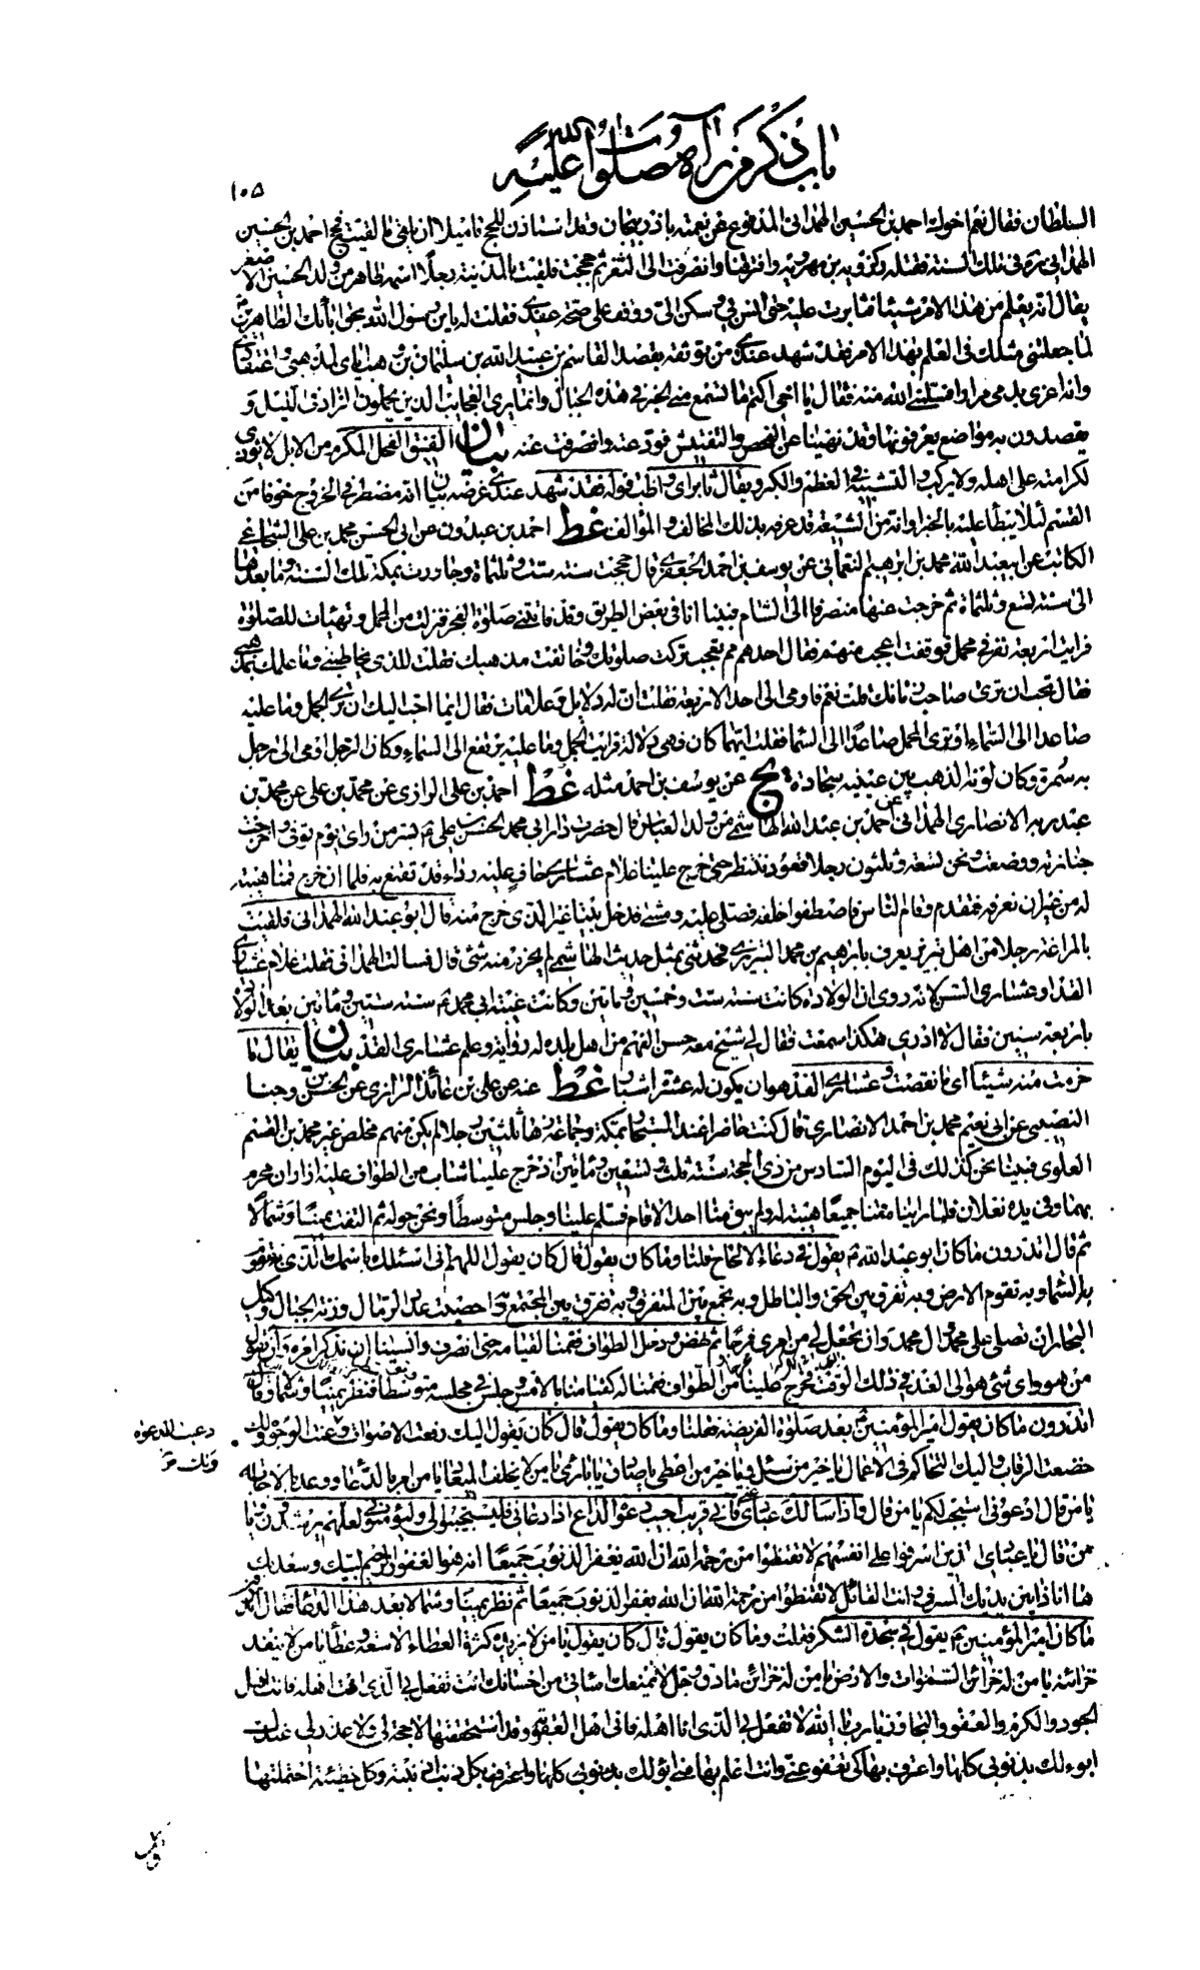 باب ذكر من رآه صلوات الله عليه
١٠٥
السلطان فقال نعم اخوك احمد بن الحسين الهمداني المدفوع عن نعمته باذربيجان وقد استاذن للحج تاميلا ان يلقى ما لقيت فحج احمد بن الحسين
الهمداني في تلك السنة فقتله ذكرويه بن مهرويه وافترقنا وانصرفت الى الثغر ثم حججت فلقيت بالمدينة رجلا اسمه طاهر من ولد الحسين الاصغر
يقال انه يعلم من هذا الامر شيئا فثابرت عليه حتى انس بي وسكن الي ووقف على صحة عقدي فقلت له يابن رسول الله بحق آبائك الطاهرين
لما جعلتني مثلك في العلم بهذا الامر فقد شهد عندي من توثقه بقصد القاسم بن عبيد الله بن سليمان بن وهب اياي لمذهبي واعتقادي
وانه اغرى بدمي مرارا فسلمني الله منه فقال يا اخي اكتم ما تسمع مني الخير في هذه الجبال وانما يرى العجائب الذين يحملون الزاد في الليل و
يقصدون به مواضع يعرفونها وقد نهينا عن الفحص والتفتيش فودعته وانصرفت عنه بيان الفنيق الفحل المكرم من الابل لا يؤذى
لكرامته على اهله ولا يركب والتشبيه في العظم والكبر ويقال ثابر اي واظب قوله فقد شهد عندي غرضه بيان انه مضطر في الخروج خوفا من
القسم لئلا يبطأ عليه بالخبر او انه من الشيعة قد عرفه بذلك المخالف والمؤالف غط احمد بن عبدون عن ابي الحسن محمد بن علي الشجاعي
الكاتب عن ابي عبد الله محمد بن ابرهيم النعماني عن يوسف بن احمد الجعفري قال حججت سنة ست وثلثمائة وجاورت بمكة تلك السنة وما بعدها
الى سنة تسع وثلثمائة ثم خرجت عنها منصرفا الى الشام فبينا انا في بعض الطريق وقد فاتتني صلوة الفجر فنزلت من المحمل وتهيات للصلوة
فرايت اربعة نفر في محمل فوقفت اعجب منهم فقال احدهم مم تعجب تركت صلوتك وخالفت مذهبك فقلت للذي يخاطبني وما علمك بمذهبي
فقال تحب ان ترى صاحب زمانك قلت نعم فاومى الى احد الاربعة فقلت ان له دلايل وعلامات فقال ايما احب اليك ان ترى الجمل وما عليه
صاعدا الى السماء او ترى المحمل صاعدا الى السماء فقلت ايهما كان فهي دلالة فرايت الجمل وما عليه يرتفع الى السماء وكان الرجل اومى الى رجل
به سمرة وكان لونه الذهب بين عينيه سجادة يج عن يوسف بن احمد مثله غط احمد بن علي الرازي عن محمد بن علي عن محمد بن
عبد ربه الانصاري الهمداني عن احمد بن عبد الله الهاشمي من ولد العباس قال حضرت دار ابي محمد الحسن بن علي ع بسر من راى يوم توفي واخرجت
جنازته ووضعت ونحن تسعة وثلثون رجلا قعود ننتظر حتى خرج علينا غلام عشاري حاف عليه رداء قد تقنع به فلما ان خرج قمنا هيبة
له من غير ان نعرفه فتقدم وقام الناس فاصطفوا خلفه فصلى عليه ومشى فدخل بيتا غير الذي خرج منه قال ابو عبد الله الهمداني فلقيت
بالمراغة رجلا من اهل تبريز يعرف بابرهيم بن محمد التبريزي فحدثني بمثل حديث الهاشمي لم يخرم منه شئ قال فسالت الهمداني فقلت غلام عشاري
القد او عشاري السن لانه روي ان الولادة كانت سنة ست وخمسين وماتين وكانت غيبة ابي محمد ع سنة ستين وماتين بعد الولادة
باربعة سنين فقال لا ادري هكذا سمعت فقال لي شيخ معه حسن الفهم من اهل بلده له رواية وعلم عشاري القد بيان يقال ما
خرمت منه شيئا اي ما نقصت وعشاري القد هو ان يكون له عشرة اشبار غط عنه عن علي بن عائذ الرازي عن الحسن بن وجناء
النصيبي عن ابي نعيم محمد بن احمد الانصاري قال كنت حاضرا عند المستجار بمكة وجماعة زهاء ثلثين رجلا لم يكن منهم مخلص غير محمد بن القسم
العلوي فبينا نحن كذلك في اليوم السادس من ذي الحجة سنة ثلث وتسعين وماتين اذ خرج علينا شاب من الطواف عليه ازاران محرم
بهما وفي يده نعلان فلما رايناه قمنا جميعا هيبة له ولم يبق منا احد الا قام فسلم علينا وجلس متوسطا ونحن حوله ثم التفت يمينا وشمالا
ثم قال اتدرون ما كان ابو عبد الله ع يقول في دعاء الالحاح قلنا وما كان يقول قال كان يقول اللهم اني اسئلك باسمك الذي به تقوم
السماء وبه تقوم الارض وبه تفرق بين الحق والباطل وبه تجمع بين المتفرق وبه تفرق بين المجتمع وبه احصيت عدد الرمال وزنة الجبال وكيل
البحار ان تصلي على محمد وآل محمد وان تجعل لي من امري فرجا ثم نهض ودخل الطواف فقمنا لقيامه حتى انصرف وانسينا ان نذكر امره وان نقول
من هو واي شئ هو الى الغد في ذلك الوقت فخرج علينا من الطواف فقمنا له كقيامنا بالامس وجلس في مجلسه متوسطا فنظر يمينا وشمالا وقال
اتدرون ما كان يقول امير المؤمنين ع بعد صلوة الفريضة فقلنا وما كان يقول قال كان يقول اليك رفعت الاصوات وعنت الوجوه ولك
دعيت الدعوة
ولك خضعت الرقاب واليك التحاكم في الاعمال يا خير من سئل ويا خير من اعطى يا صادق يا بارئ يا من لا يخلف الميعاد يا من امر بالدعاء ووعد بالاجابة
يا من قال ادعوني استجب لكم يا من قال واذا سالك عبادي عني فاني قريب اجيب دعوة الداع اذا دعاني فليستجيبوا لي وليؤمنوا بي لعلهم يرشدون يا
من قال يا عبادي الذين اسرفوا على انفسهم لا تقنطوا من رحمة الله ان الله يغفر الذنوب جميعا انه هو الغفور الرحيم لبيك وسعديك
ها انا ذا بين يديك المسرف وانت القائل لا تقنطوا من رحمة الله ان الله يغفر الذنوب جميعا ثم نظر يمينا وشمالا بعد هذا الدعاء فقال اتدرون
ما كان امير المؤمنين ع يقول في سجدة الشكر فقلت وما كان يقول قال كان يقول يا من لا يزيده كثرة العطاء الا سعة وعطاء يا من لا ينفد
خزائنه يا من له خزائن السموات والارض يا من له خزائن ما دق وجل لا تمنعك اسائتي من احسانك انت تفعل بي الذي انت اهله فانت اهل
الجود والكرم والعفو والتجاوز يا رب يا الله لا تفعل بي الذي انا اهله فاني اهل العقوبة وقد استحققتها لا حجة لي ولا عذر لي عندك
ابوء لك بذنوبي كلها واعترف بها كي تعفو عني وانت اعلم بها مني ابوء لك بذنوبي كلها واعترف بكل ذنب اذنبته وكل خطيئة احتملتها